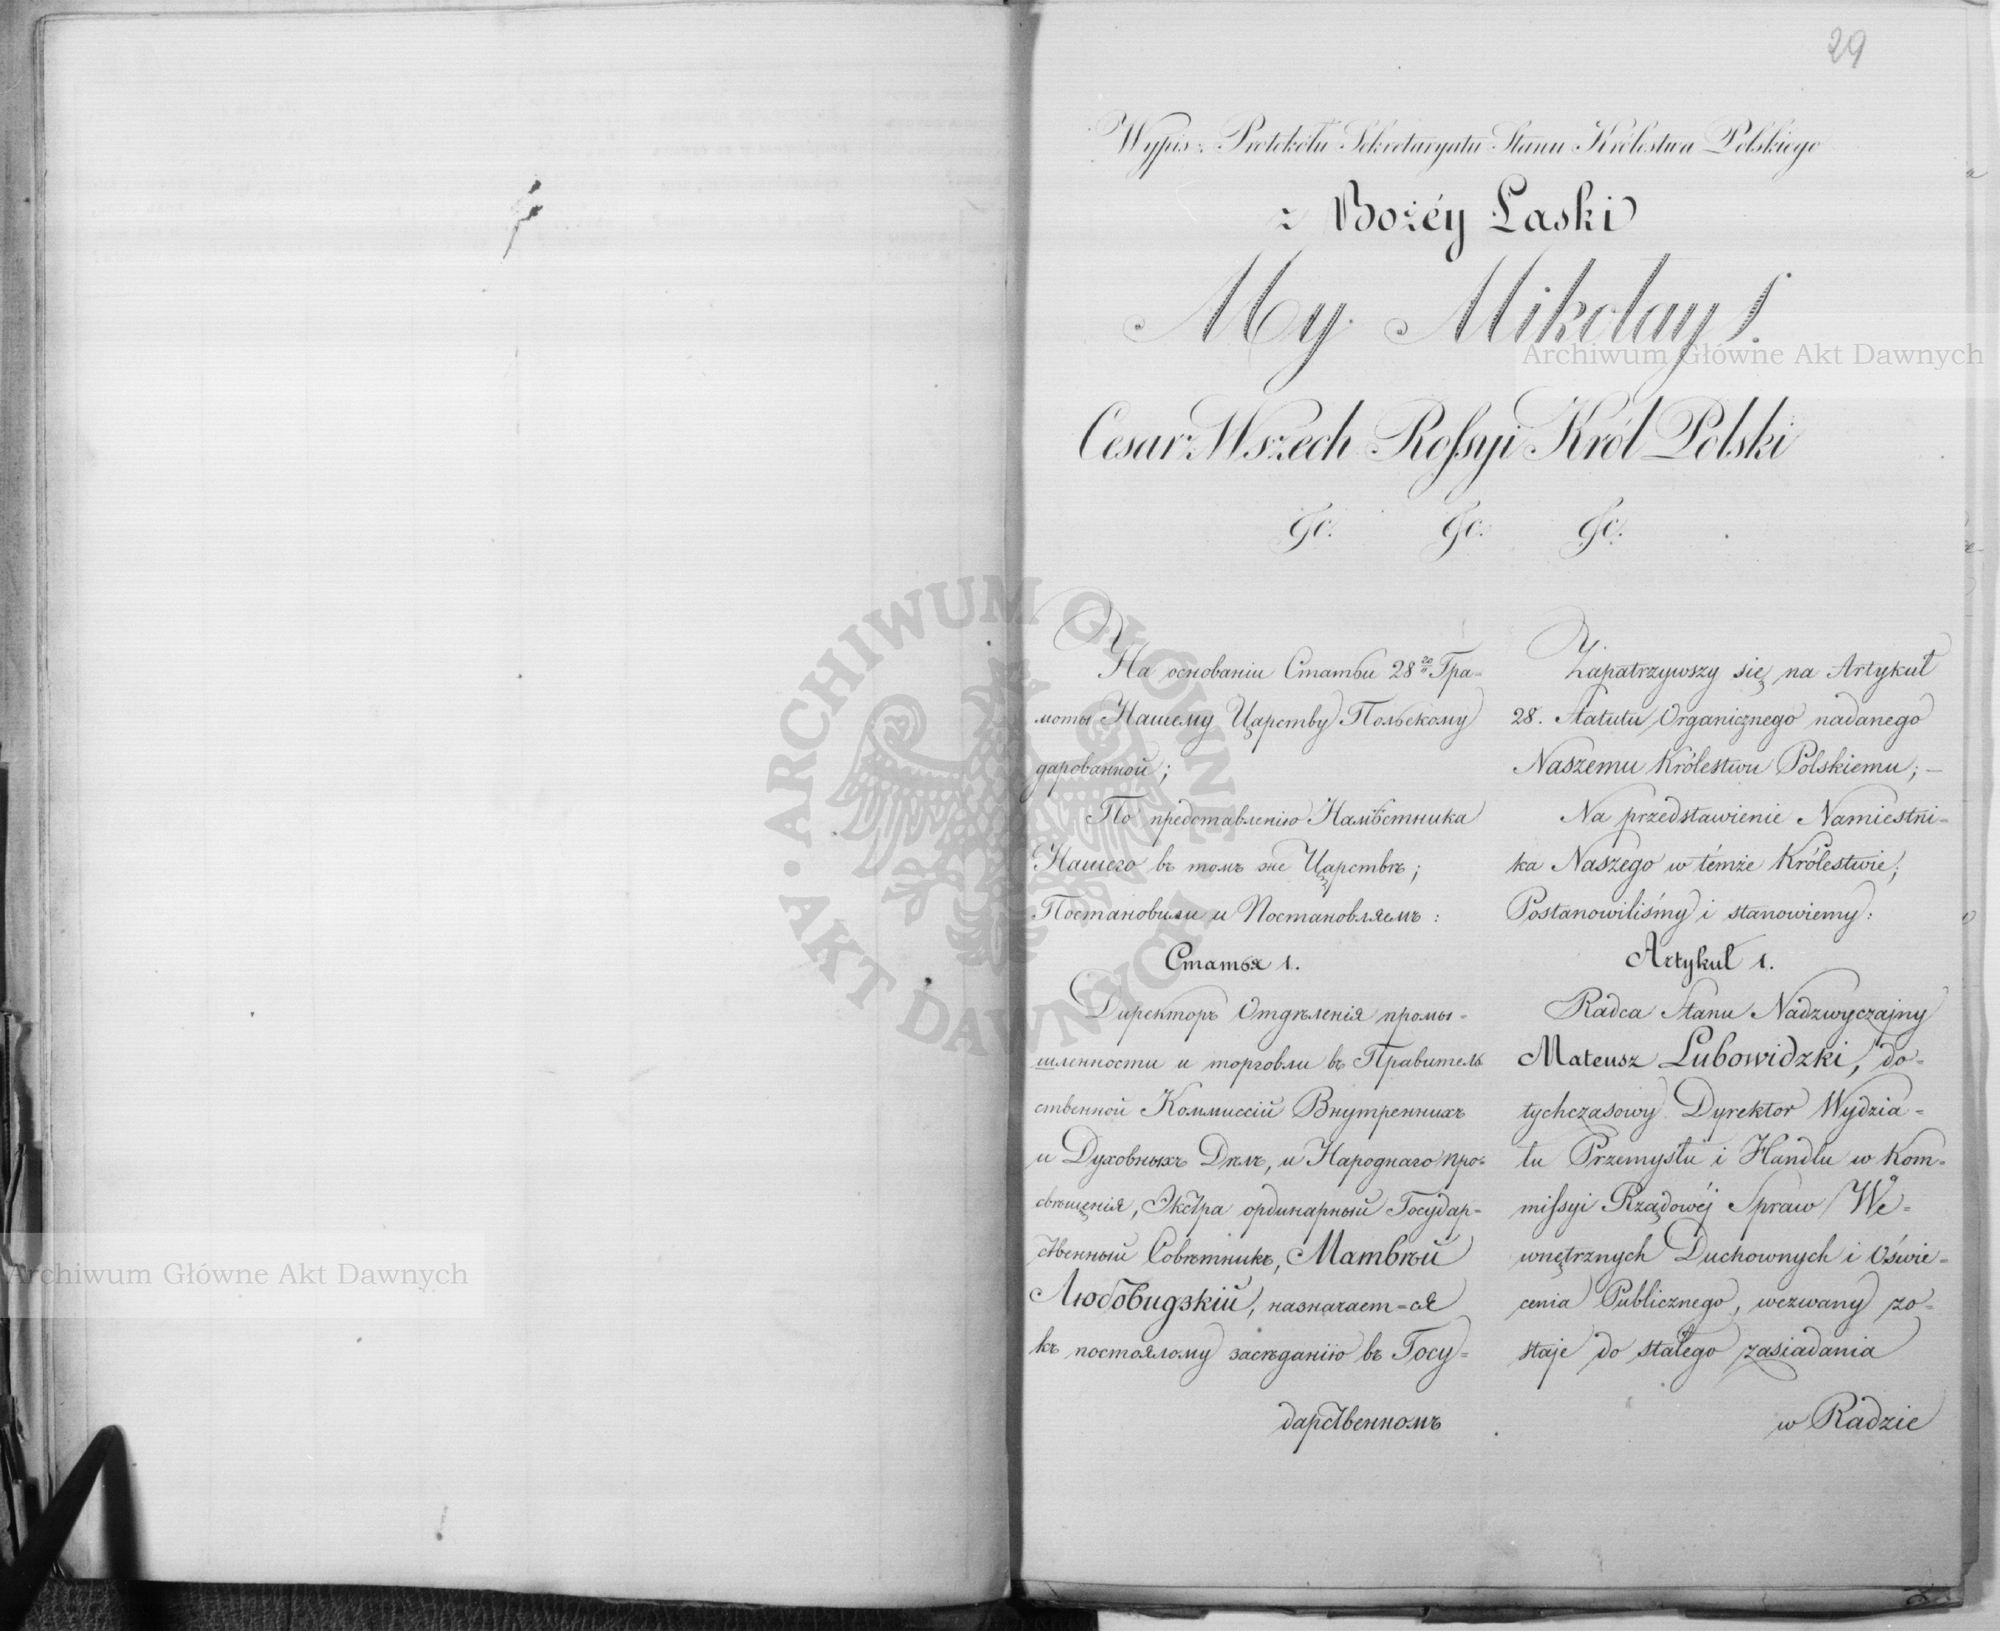 29
Wypis z Protokółu Sekretaryatu Stanu Królestwa Polskiego
z Bożéy Łaski
My Mikołay I.
Cesarz Wszech Rossyi Król Polski
&c. &c. &c.
На основаніи Статьи 28ой Гра-
моты Нашему Царству Польскому
дарованной;
По представленію Намѣстника
Нашего въ томъ же Царствѣ;
Постановили и Постановляемъ:
Статья 1.
Директоръ Отдѣленія промы-
шленности и торговли въ Правитель
ственной Коммиссіи Внутреннихъ
и Духовныхъ Дѣлъ, и Народнаго про-
свѣщенія, Экстра ординарный Государ-
ственный Совѣтникъ, Матвѣй
Любовидзкій, назначает-ся
къ постоялому засѣданію въ Госу-
дарственномъ
Zapatrzywszy się na Artykuł
28. Statutu Organicznego nadanego
Naszemu Królestwu Polskiemu; —
Na przedstawienie Namiestni-
ka Naszego w témże Królestwie;
Postanowiliśmy i stanowiemy:
Artykuł 1.
Radca Stanu Nadzwyczajny
Mateusz Lubowidzki, do-
tychczasowy Dyrektor Wydzia-
łu Przemysłu i Handlu w Kom-
missyi Rządowéj Spraw We-
wnętrznych Duchownych i Oświe-
cenia Publicznego, wezwany zo-
staje do stałego zasiadania
w Radzie
Archiwum Główne Akt Dawnych
Archiwum Główne Akt Dawnych
ARCHIWUM GŁÓWNE AKT DAWNYCH